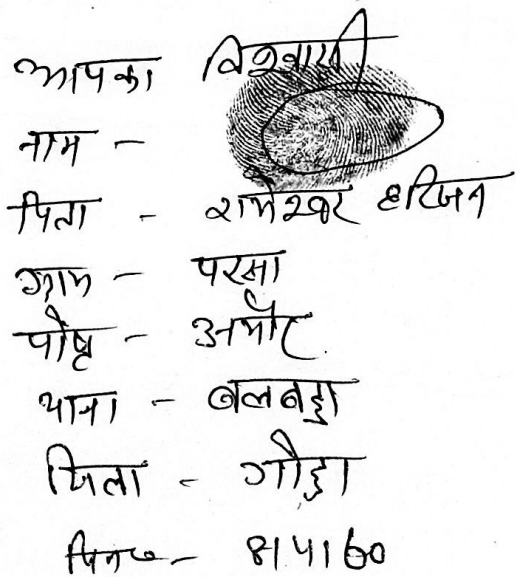 आपका विश्वासी
नाम -
पिता - रामेश्वर हरिजन
ग्राम - परसा
पोष्ट - अमौर
थाना - बलबड्डा
जिला - गोड्डा
पिन - 814160